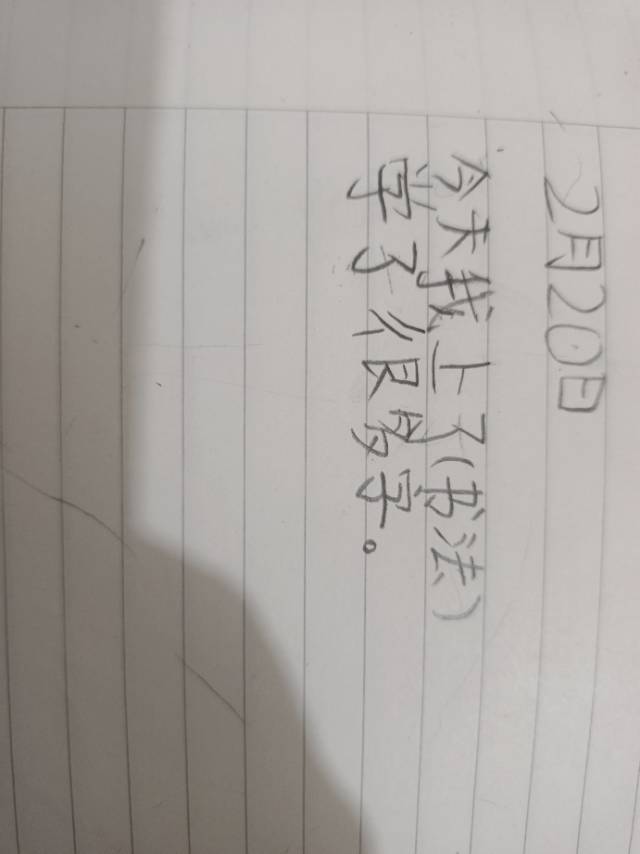 2月20日
今天我上了(书法)
学了很多字。